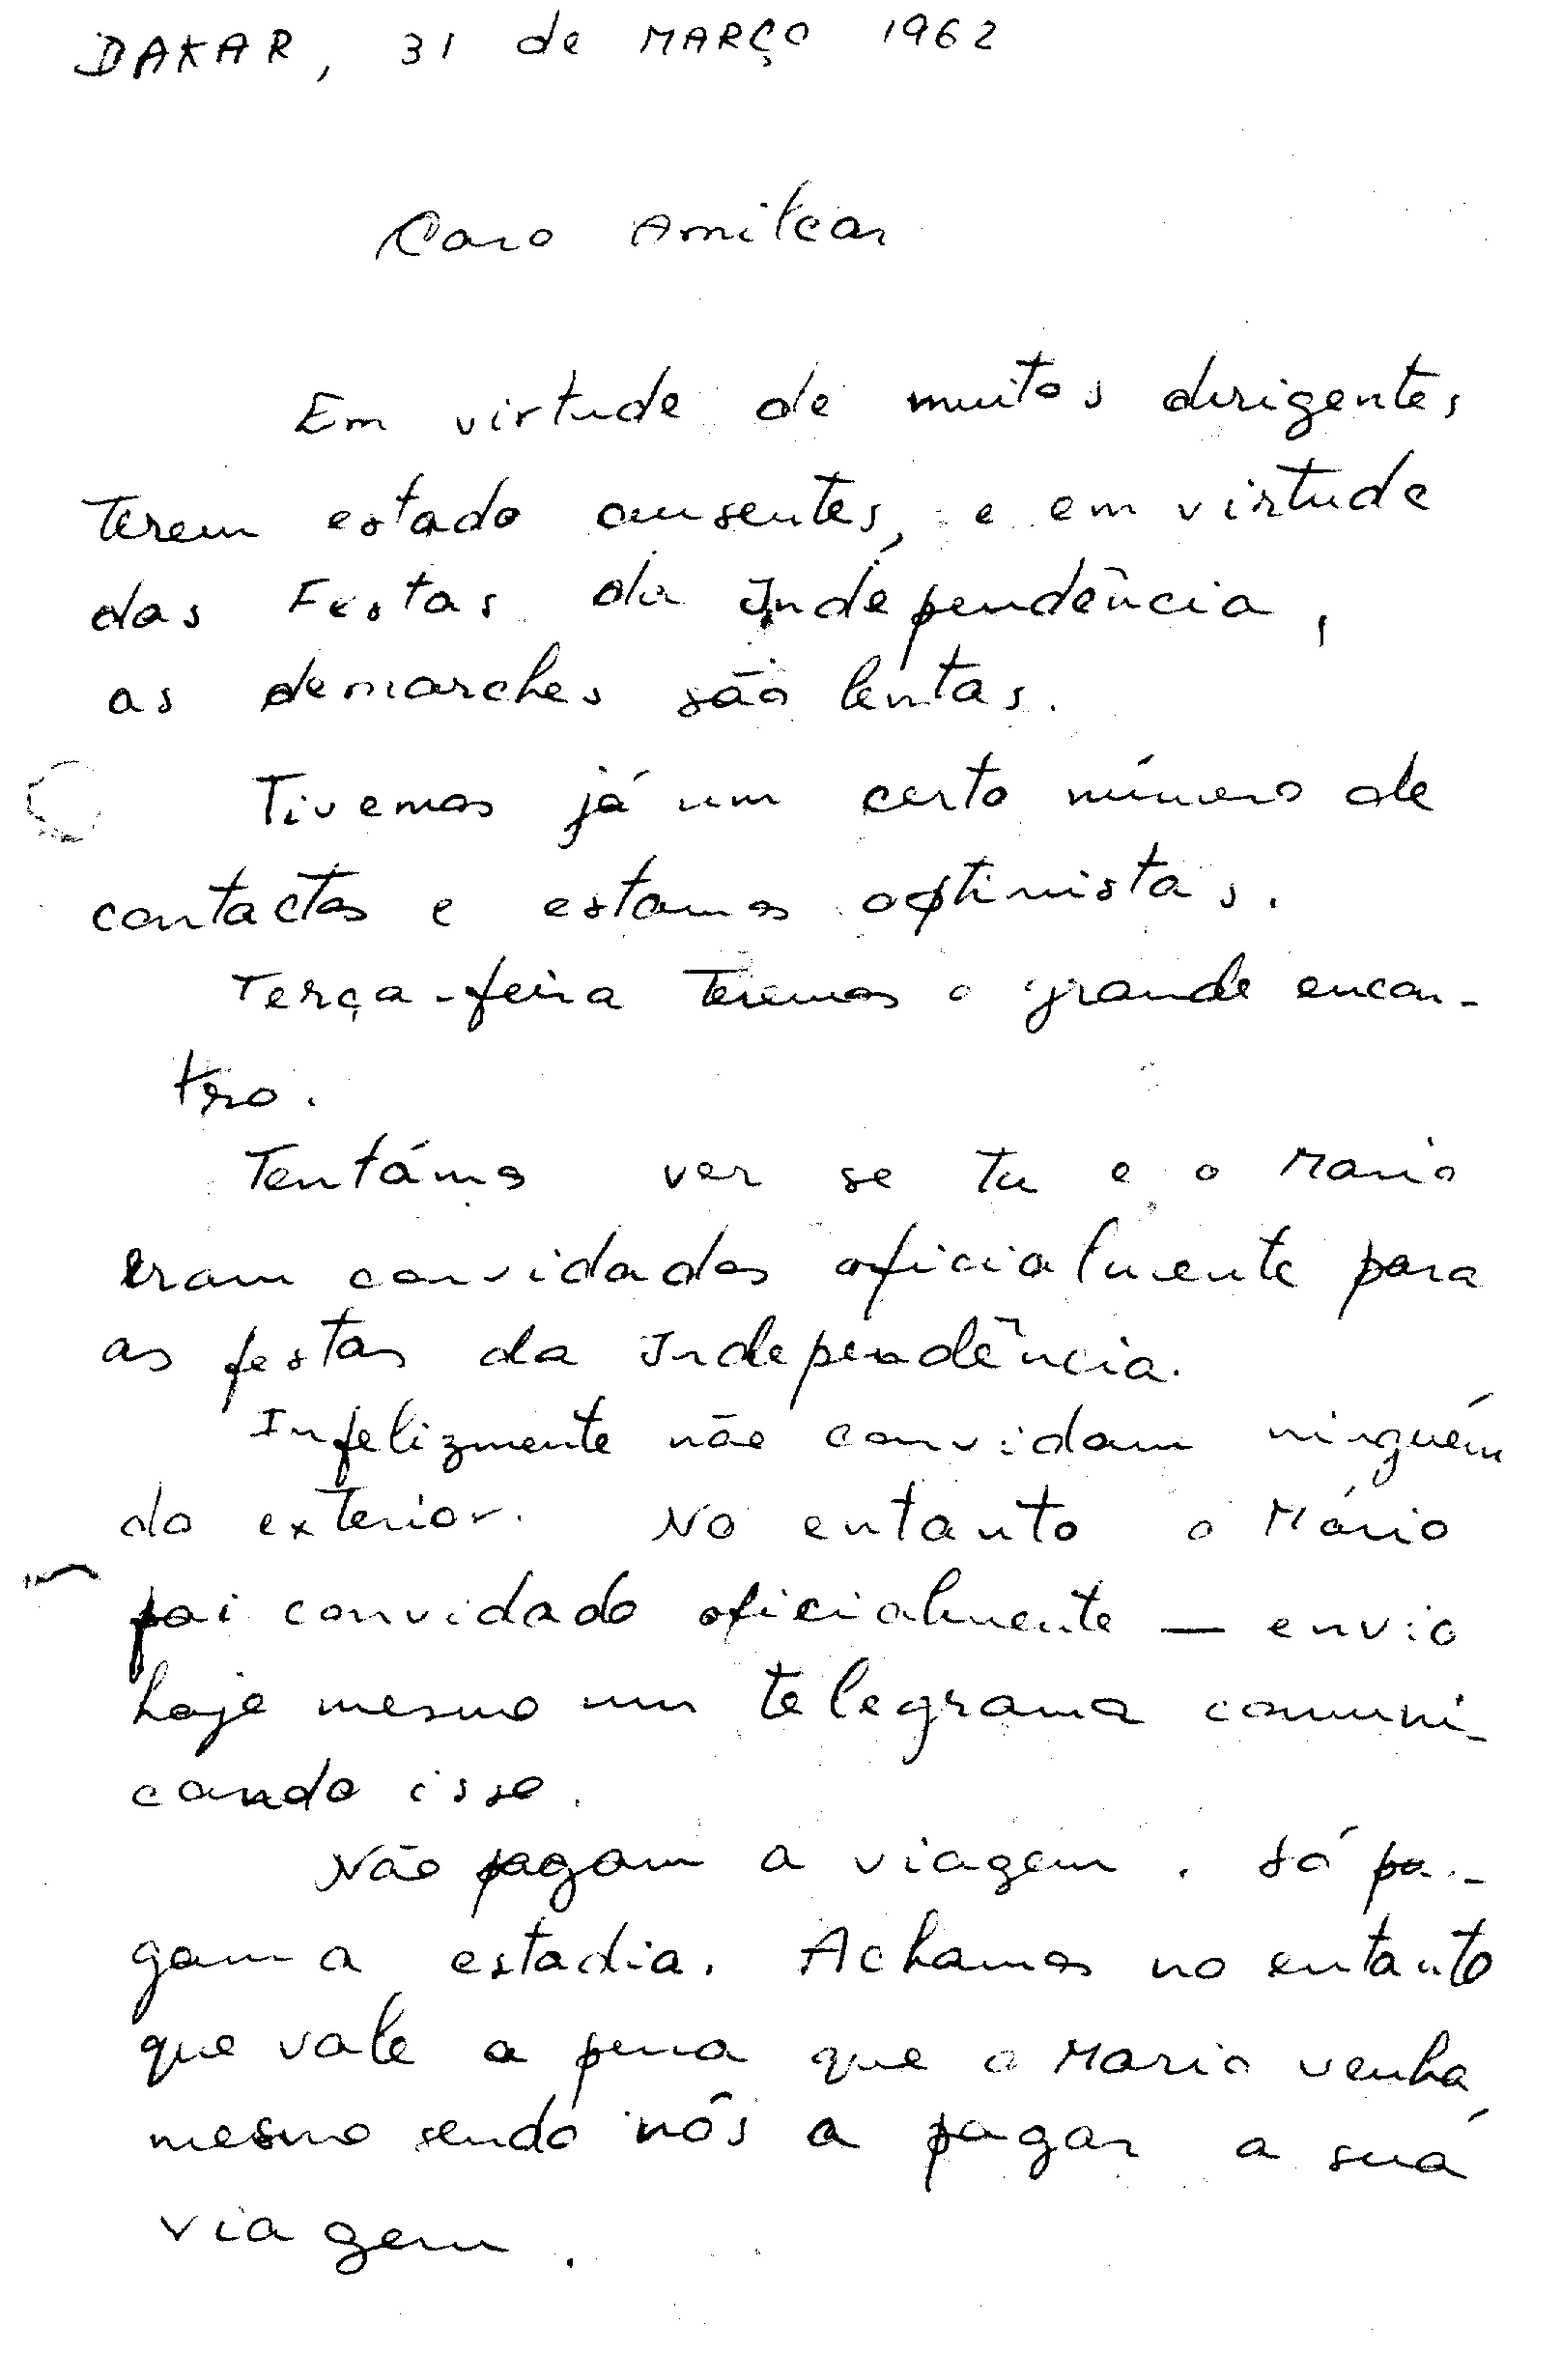 DAKAR, 31 de MARÇO 1962
Caro Amilcar
Em virtude de muitos dirigentes
terem estado ausentes, e em virtude
das Festas da Independência,
as demarches são lentas.
Tivemos já um certo número de
contactos e estamos optimistas.
Terça-feira teremos o grande encon-
tro.
Tentámos ver se tu e o Mario
eram convidados oficialmente para
as festas da Independência.
Infelizmente não convidam ninguém
do exterior. No entanto o Mário
foi convidado oficialmente — envio
hoje mesmo um telegrama comuni-
cando isso.
Não pagam a viagem. Só pa-
gam a estadia. Achamos no entanto
que vale a pena que o Mario venha,
mesmo sendo nós a pagar a sua
viagem.